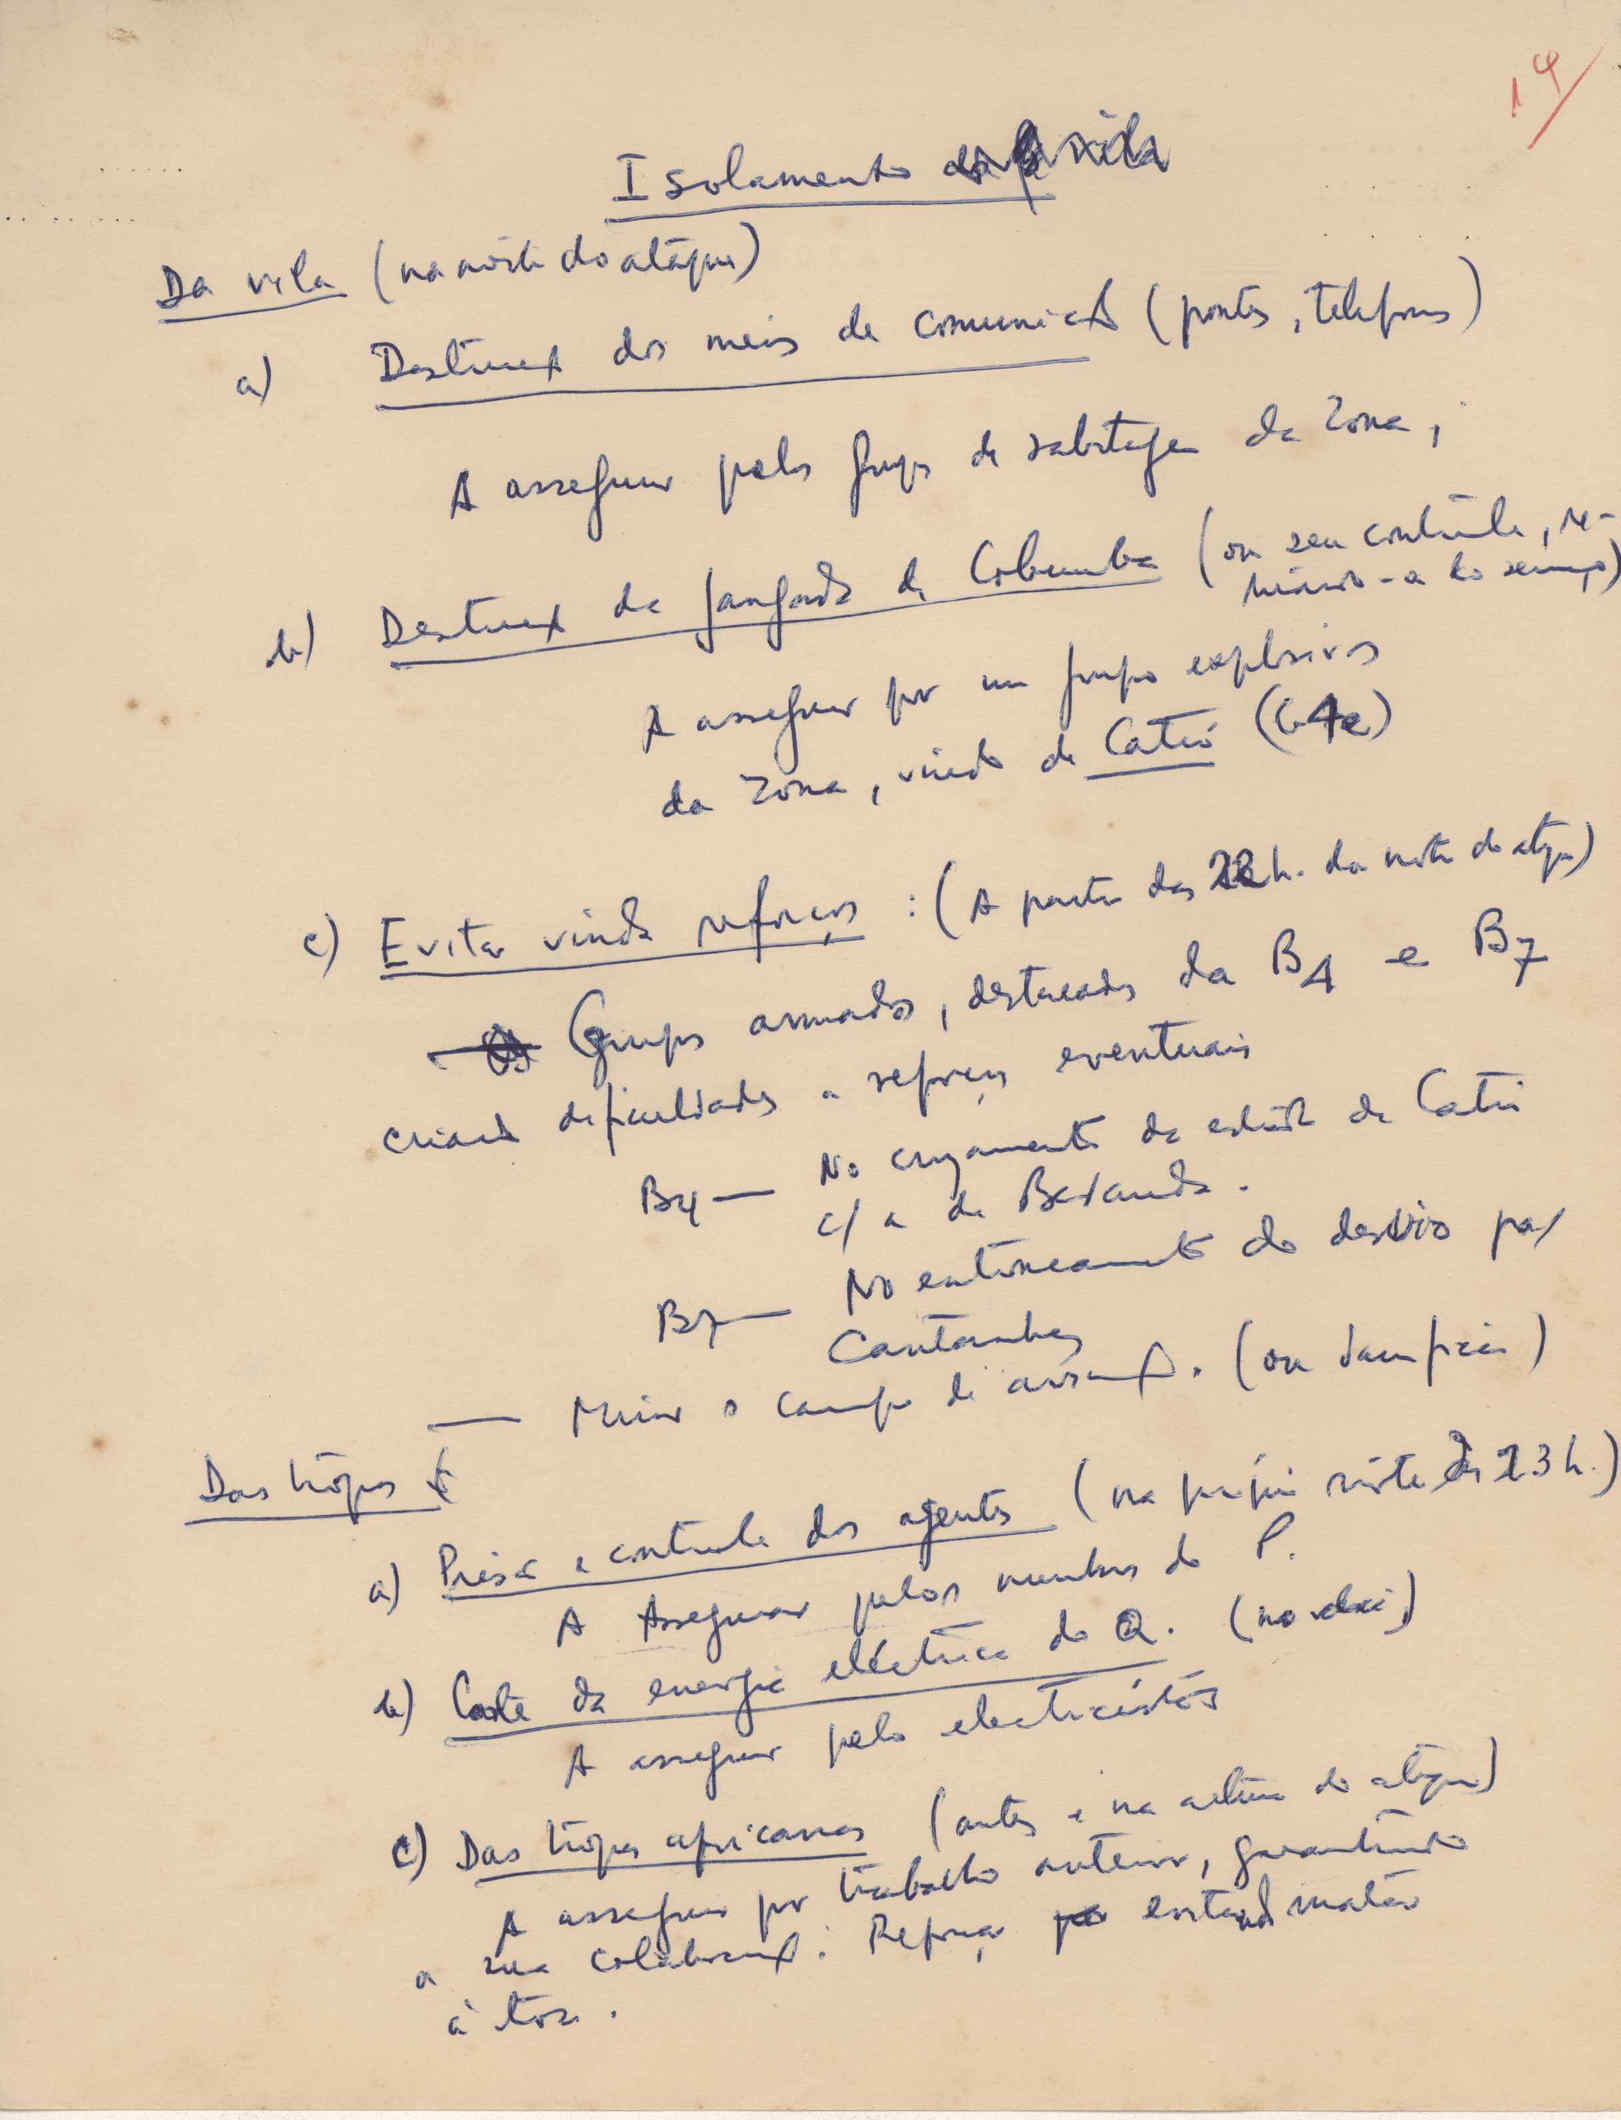 14
Isolamento da vila
Da vila (na noite do ataque)
a) Destruiç dos meios de comunicaç (pontes, telefones)
A assegurar pelos grupos de sabotagem da Zona,
b) Destruiç da jangada de Cobumba (ou seu contrôle, re-
tirando-a do serviço)
A assegurar por um grupo explosivos
da Zona, vindo de Catió (
c) Evitar vinda reforços : (A partir das 22 h. da noite do ataque)
Grupos armados, destacados da B4 e B7
criand dificuldades a reforços eventuais
B4 — No cruzamento da estrada de Catió
c/ a de Bedanda.
B7 — No entroncamento do desvio par
Cantanhez
— Minar o campo de aviaç. (ou danificar)
Das tropas
a) Prisã e contrôle dos agentes (na própria noite às 23 h.)
A Assegurar pelos membros do P.
b) Corte da energia eléctrica do Q. (no
A assegurar pelo electricista
c) Das tropas africanas (antes e na altura do ataque)
A assegurar por trabalho anterior, garantindo
a sua colaboraç. Reforçar evitand matar
à tôa.